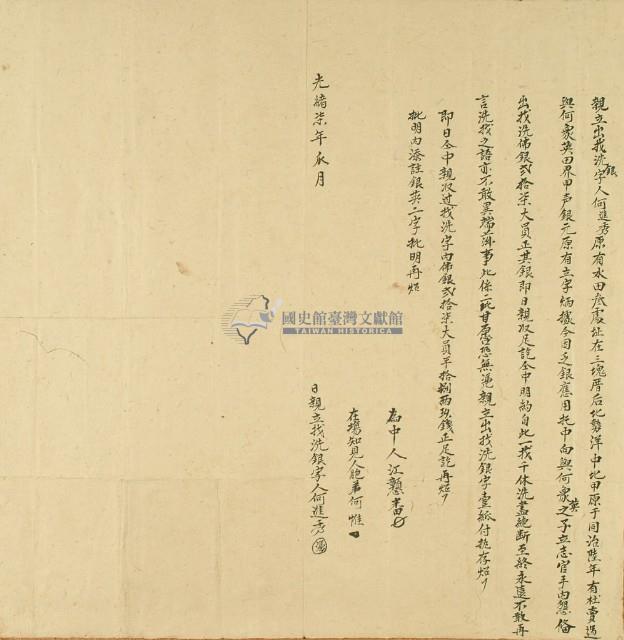 親立出找洗銀字人何進秀原有水田貳處址在三塊厝后北勢洋中北甲原于同治陸年有杜賣過
與何衆英田界甲声銀元原有立字炳據今因乏銀應用托中向與何衆英之子立志官手內懇俻
出找洗佛銀貳拾柒大員正其銀即日親收足訖仝中明約自此一找千休洗盡絶断至終永遠不敢再
言洗找之語亦不敢異端滋事此係二比甘願恐無憑親立出找洗銀字壹紙付執存炤
即日仝中親收过找洗字內佛銀貳拾柒大員平拾捌兩玖錢正足訖再炤
批明內添註銀英二字批明再炤
為中人江
在塲知見人胞弟何惟
光緒柒年 月 日親立找洗銀字人何進秀
國史館臺灣文獻館
TAIWAN HISTORICA